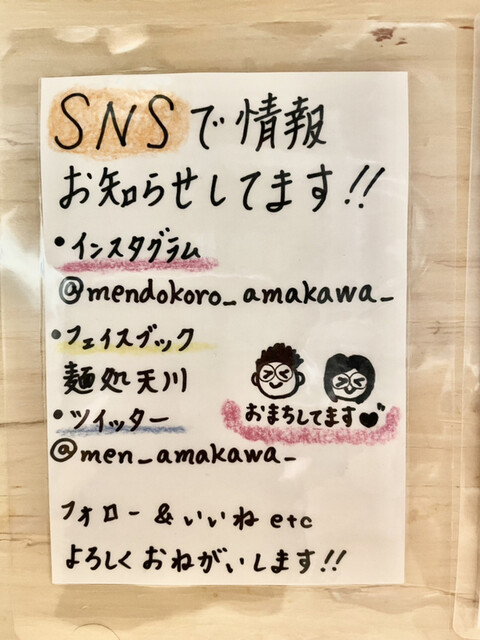 SNSで情報
お知らせしてます!!
•インスタグラム
@mendokoro_amakawa_
•フェイスブック
麺処天川
•ツイッター
@men_amakawa_
おまちしてます♥
フォロー&いいねetc
よろしくおねがいします!!